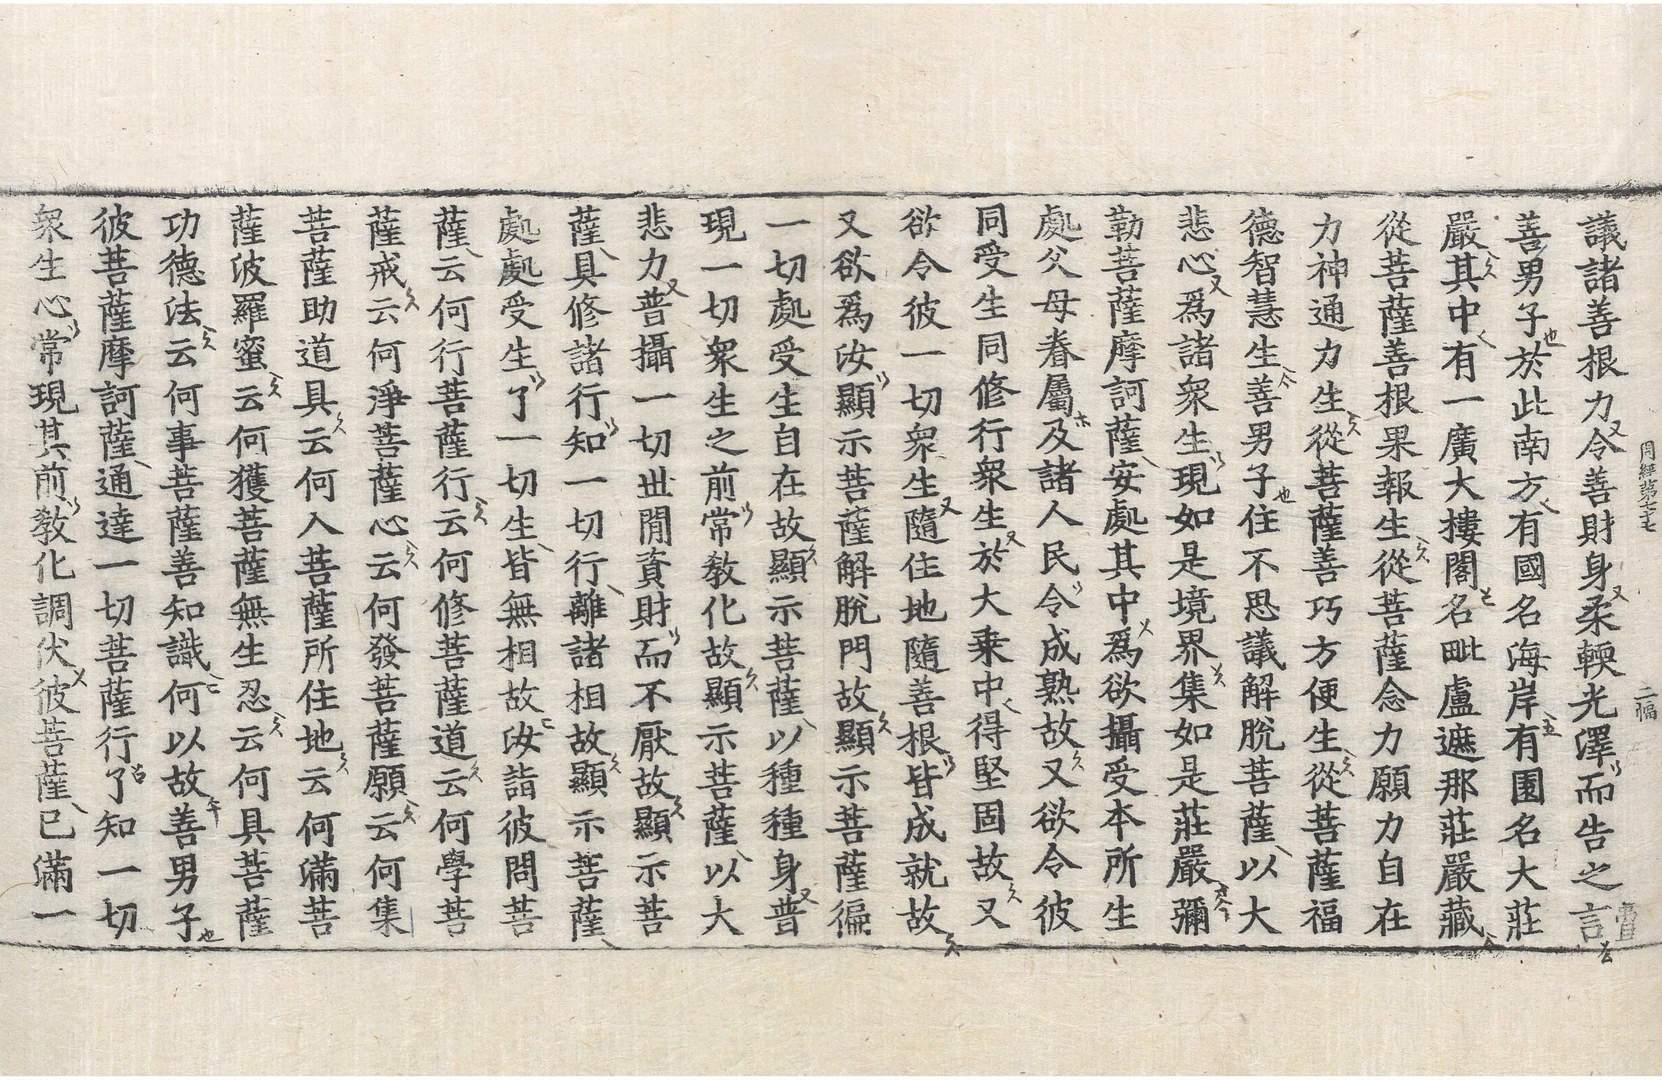 周經第七十七
二幅
議諸善根力令善財身柔輭光澤而告之言
善男子於此南方有國名海岸有園名大莊
嚴其中有一廣大樓閣名毗盧遮那莊嚴藏
從菩薩善根果報生從菩薩念力願力自在
力神通力生從菩薩善巧方便生從菩薩福
德智慧生善男子住不思議解脫菩薩以大
悲心爲諸衆生現如是境界集如是莊嚴彌
勒菩薩摩訶薩安處其中爲欲攝受本所生
處父母眷屬及諸人民令成熟故又欲令彼
同受生同修行衆生於大乘中得堅固故又
欲令彼一切衆生隨住地隨善根皆成就故
又欲爲汝顯示菩薩解脫門故顯示菩薩徧
一切處受生自在故顯示菩薩以種種身普
現一切衆生之前常敎化故顯示菩薩以大
悲力普攝一切世閒資財而不厭故顯示菩
薩具修諸行知一切行離諸相故顯示菩薩
處處受生了一切生皆無相故汝詣彼問菩
薩云何行菩薩行云何修菩薩道云何學菩
薩戒云何淨菩薩心云何發菩薩願云何集
菩薩助道具云何入菩薩所住地云何滿菩
薩波羅蜜云何獲菩薩無生忍云何具菩薩
功德法云何事菩薩善知識何以故善男子
彼菩薩摩訶薩通達一切菩薩行了知一切
衆生心常現其前敎化調伏彼菩薩已滿一